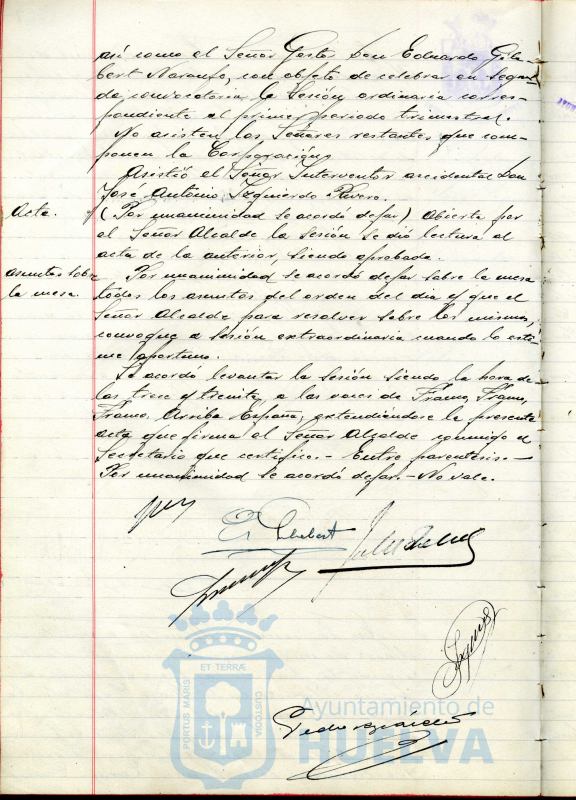 así como el Señor Gestor Don Eduardo Gil-
bert Naranjo, con objeto de celebrar en segun-
da convocatoria la Sesión ordinaria corres-
pondiente al primer periodo trimestral.
No asisten los Señores restantes que com-
ponen la Corporación,
Asistió el Señor Interventor accidental Don
José Antonio Izquierdo Rivero.
Acta.
(Por unanimidad se acordó dejar) Abierta por
el Señor Alcalde la sesión se dió lectura al
acta de la anterior, siendo aprobada.
asuntos sobre
la mesa.
Por unanimidad se acordó dejar sobre la mesa
todos los asuntos del orden del dia y que el
Señor Alcalde para resolver sobre los mismos,
convoque a sesión extraordinaria cuando lo esti-
me oportuno.
Se acordó levantar la sesión siendo la hora de
las trece y treinta, a las voces de Franco, Franco,
Franco, Arriba España, extendiéndose la presente
acta que firma el Señor Alcalde conmigo el
Secretario que certifico.- Entre parentesis.-
Por unanimidad se acordó dejar.- No vale.
ET TERRÆ
PORTUS MARIS
CUSTODIA
Ayuntamiento de
HUELVA